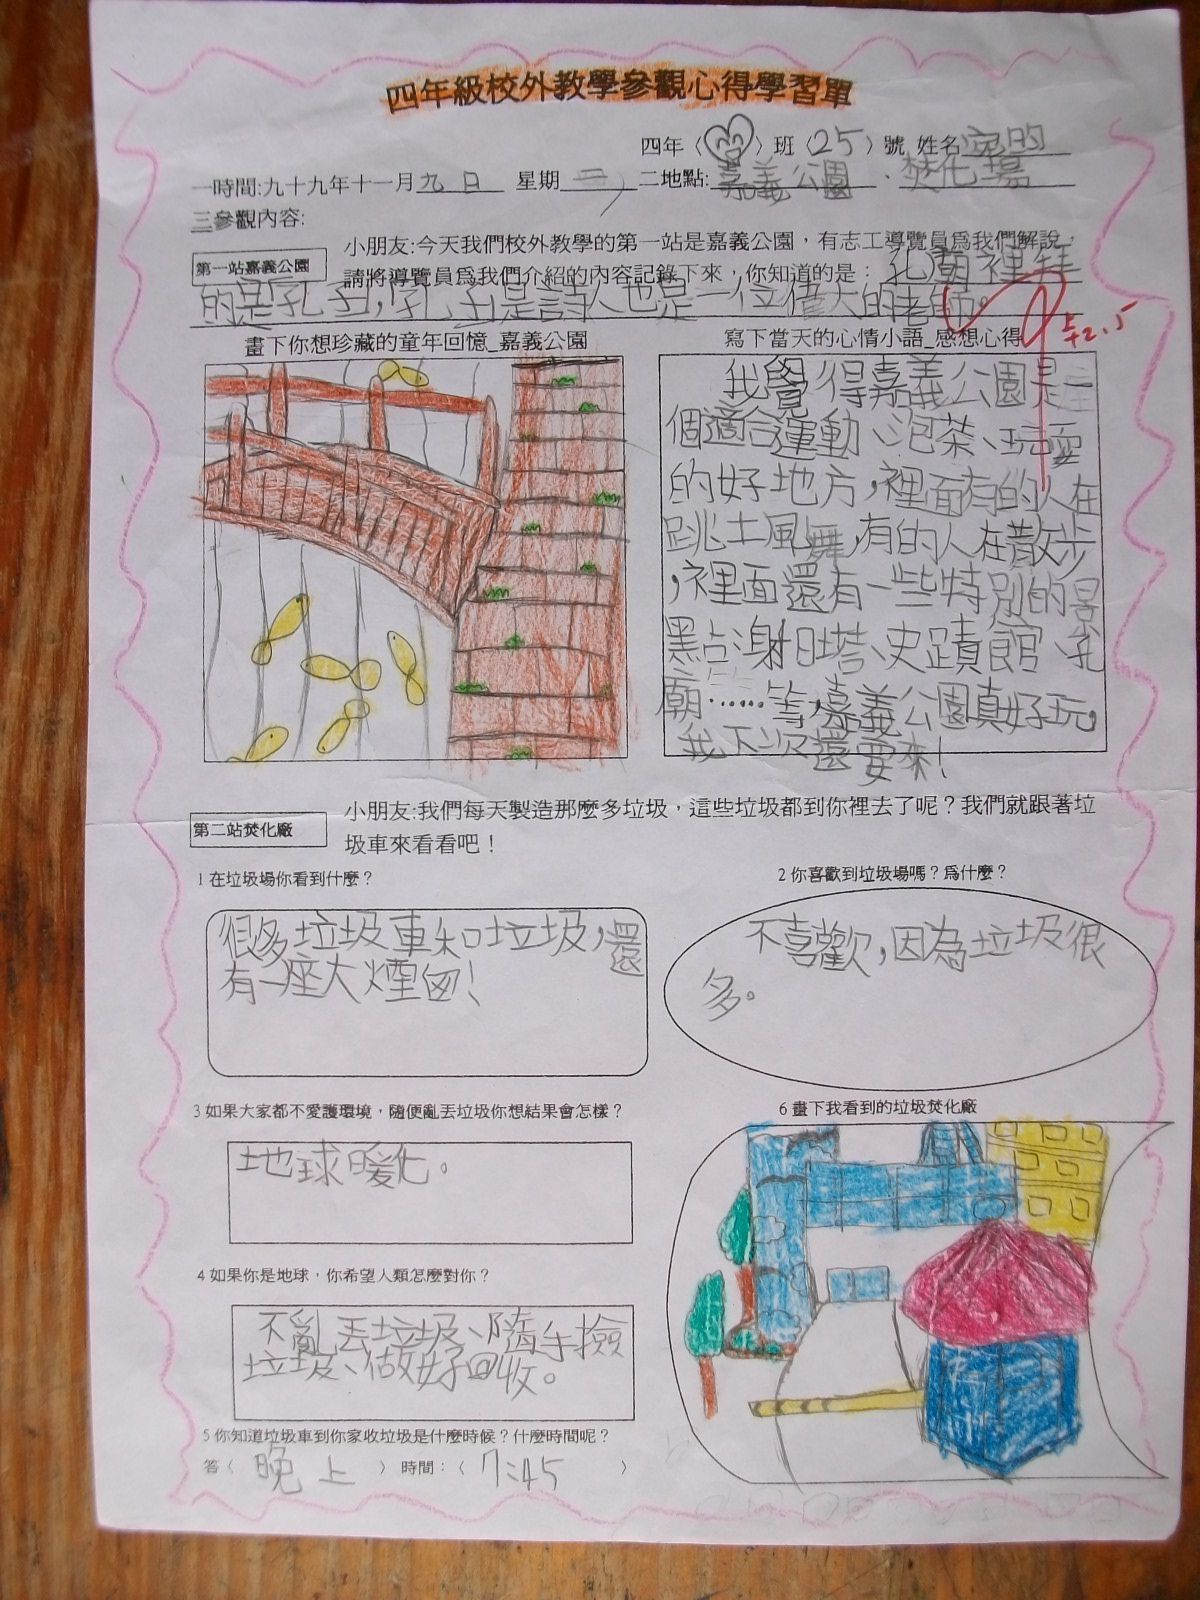 四年級校外教學參觀心得學習單
四年〈 〉班〈25〉號 姓名 宛昀
一時間:九十九年十一月九日 星期二 二地點:嘉義公園、焚化場
三參觀內容:
小朋友:今天我們校外教學的第一站是嘉義公園，有志工導覽員為我們解說，
第一站嘉義公園
請將導覽員為我們介紹的內容記錄下來，你知道的是：孔廟裡拜
的是孔子,孔子是詩人也是一位偉大的老師。
畫下你想珍藏的童年回憶_嘉義公園
寫下當天的心情小語_感想心得
我覺得嘉義公園是一
個適合運動、泡茶、玩耍
的好地方,裡面有的人在
跳土風舞,有的人在散步
,裡面還有一些特別的景
點:射日塔、史蹟館、孔
廟……等,嘉義公園真好玩,
我下次還要來!
小朋友:我們每天製造那麼多垃圾，這些垃圾都到你裡去了呢？我們就跟著垃
第二站焚化廠
圾車來看看吧！
1 在垃圾場你看到什麼？
很多垃圾車和垃圾,還
有一座大煙囪!
2 你喜歡到垃圾場嗎？為什麼？
不喜歡,因為垃圾很
多。
3 如果大家都不愛護環境，隨便亂丟垃圾你想結果會怎樣？
地球暖化。
4 如果你是地球，你希望人類怎麼對你？
不亂丟垃圾、隨手撿
垃圾、做好回收。
5 你知道垃圾車到你家收垃圾是什麼時候？什麼時間呢？
答〈 晚上 〉 時間：〈 7:45 〉
6 畫下我看到的垃圾焚化廠